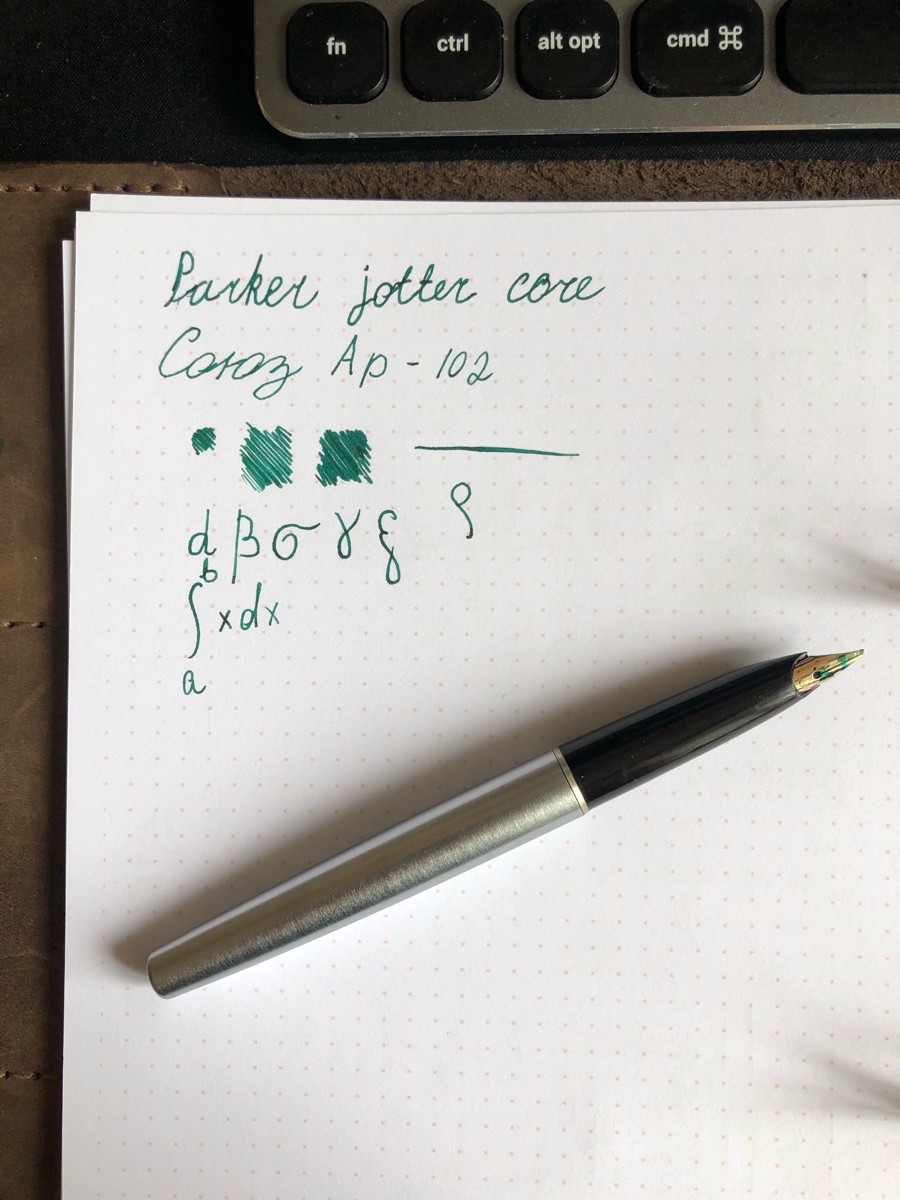 fn ctrl alt opt cmd ⌘
Parker jotter core
Союз Ар - 102
d β σ γ ξ ρ
b
∫ x dx
a